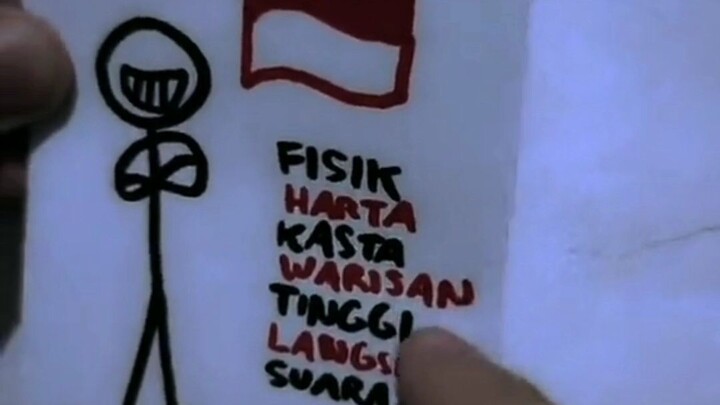 FISIK
HARTA
KASTA
WARISAN
TINGGI
SUARA